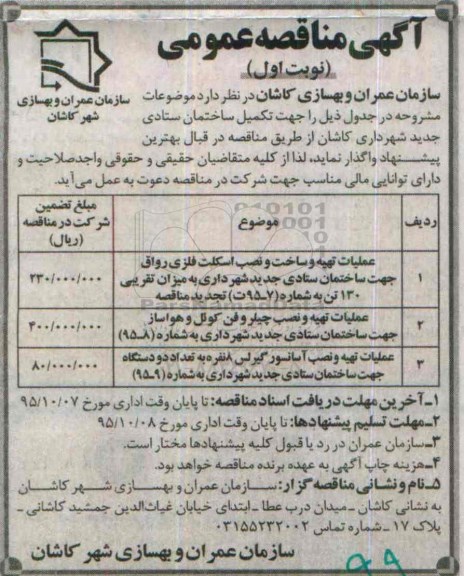 آگهی مناقصه عمومی
(نوبت اول)
سازمان عمران و بهسازی
شهر کاشان
سازمان عمران و بهسازی کاشان در نظر دارد موضوعات
مشروحه در جدول ذیل را جهت تکمیل ساختمان ستادی
جدید شهرداری کاشان از طریق مناقصه در قبال بهترین
پیشنهاد واگذار نماید، لذا از کلیه متقاضیان حقیقی و حقوقی واجدصلاحیت و
دارای توانایی مالی مناسب جهت شرکت در مناقصه دعوت به عمل می‌آید.
ردیف موضوع مبلغ تضمین شرکت در مناقصه (ریال)
۱ عملیات تهیه و ساخت و نصب اسکلت فلزی رواق
جهت ساختمان ستادی جدید شهرداری به میزان تقریبی
۱۳۰ تن به شماره (۷-۹۵ت) تجدید مناقصه
۲۳۰/۰۰۰/۰۰۰
۲ عملیات تهیه و نصب چیلر و فن کوئل و هواساز
جهت ساختمان ستادی جدید شهرداری به شماره (۸-۹۵)
۴۰۰/۰۰۰/۰۰۰
۳ عملیات تهیه و نصب آسانسور گیرلس ۸نفره به تعداد دو دستگاه
جهت ساختمان ستادی جدید شهرداری به شماره (۹-۹۵)
۸۰/۰۰۰/۰۰۰
۱-آخرین مهلت دریافت اسناد مناقصه: تا پایان وقت اداری مورخ ۹۵/۱۰/۰۷
۲-مهلت تسلیم پیشنهادها: تا پایان وقت اداری مورخ ۹۵/۱۰/۰۸
۳-سازمان عمران در رد یا قبول کلیه پیشنهادها مختار است.
۴-هزینه چاپ آگهی به عهده برنده مناقصه خواهد بود.
۵-نام و نشانی مناقصه گزار: سازمان عمران و بهسازی شهر کاشان
به نشانی کاشان - میدان درب عطا - ابتدای خیابان غیاث‌الدین جمشید کاشانی -
پلاک ۱۷ - شماره تماس ۰۳۱۵۵۲۳۲۰۰۲
سازمان عمران و بهسازی شهر کاشان